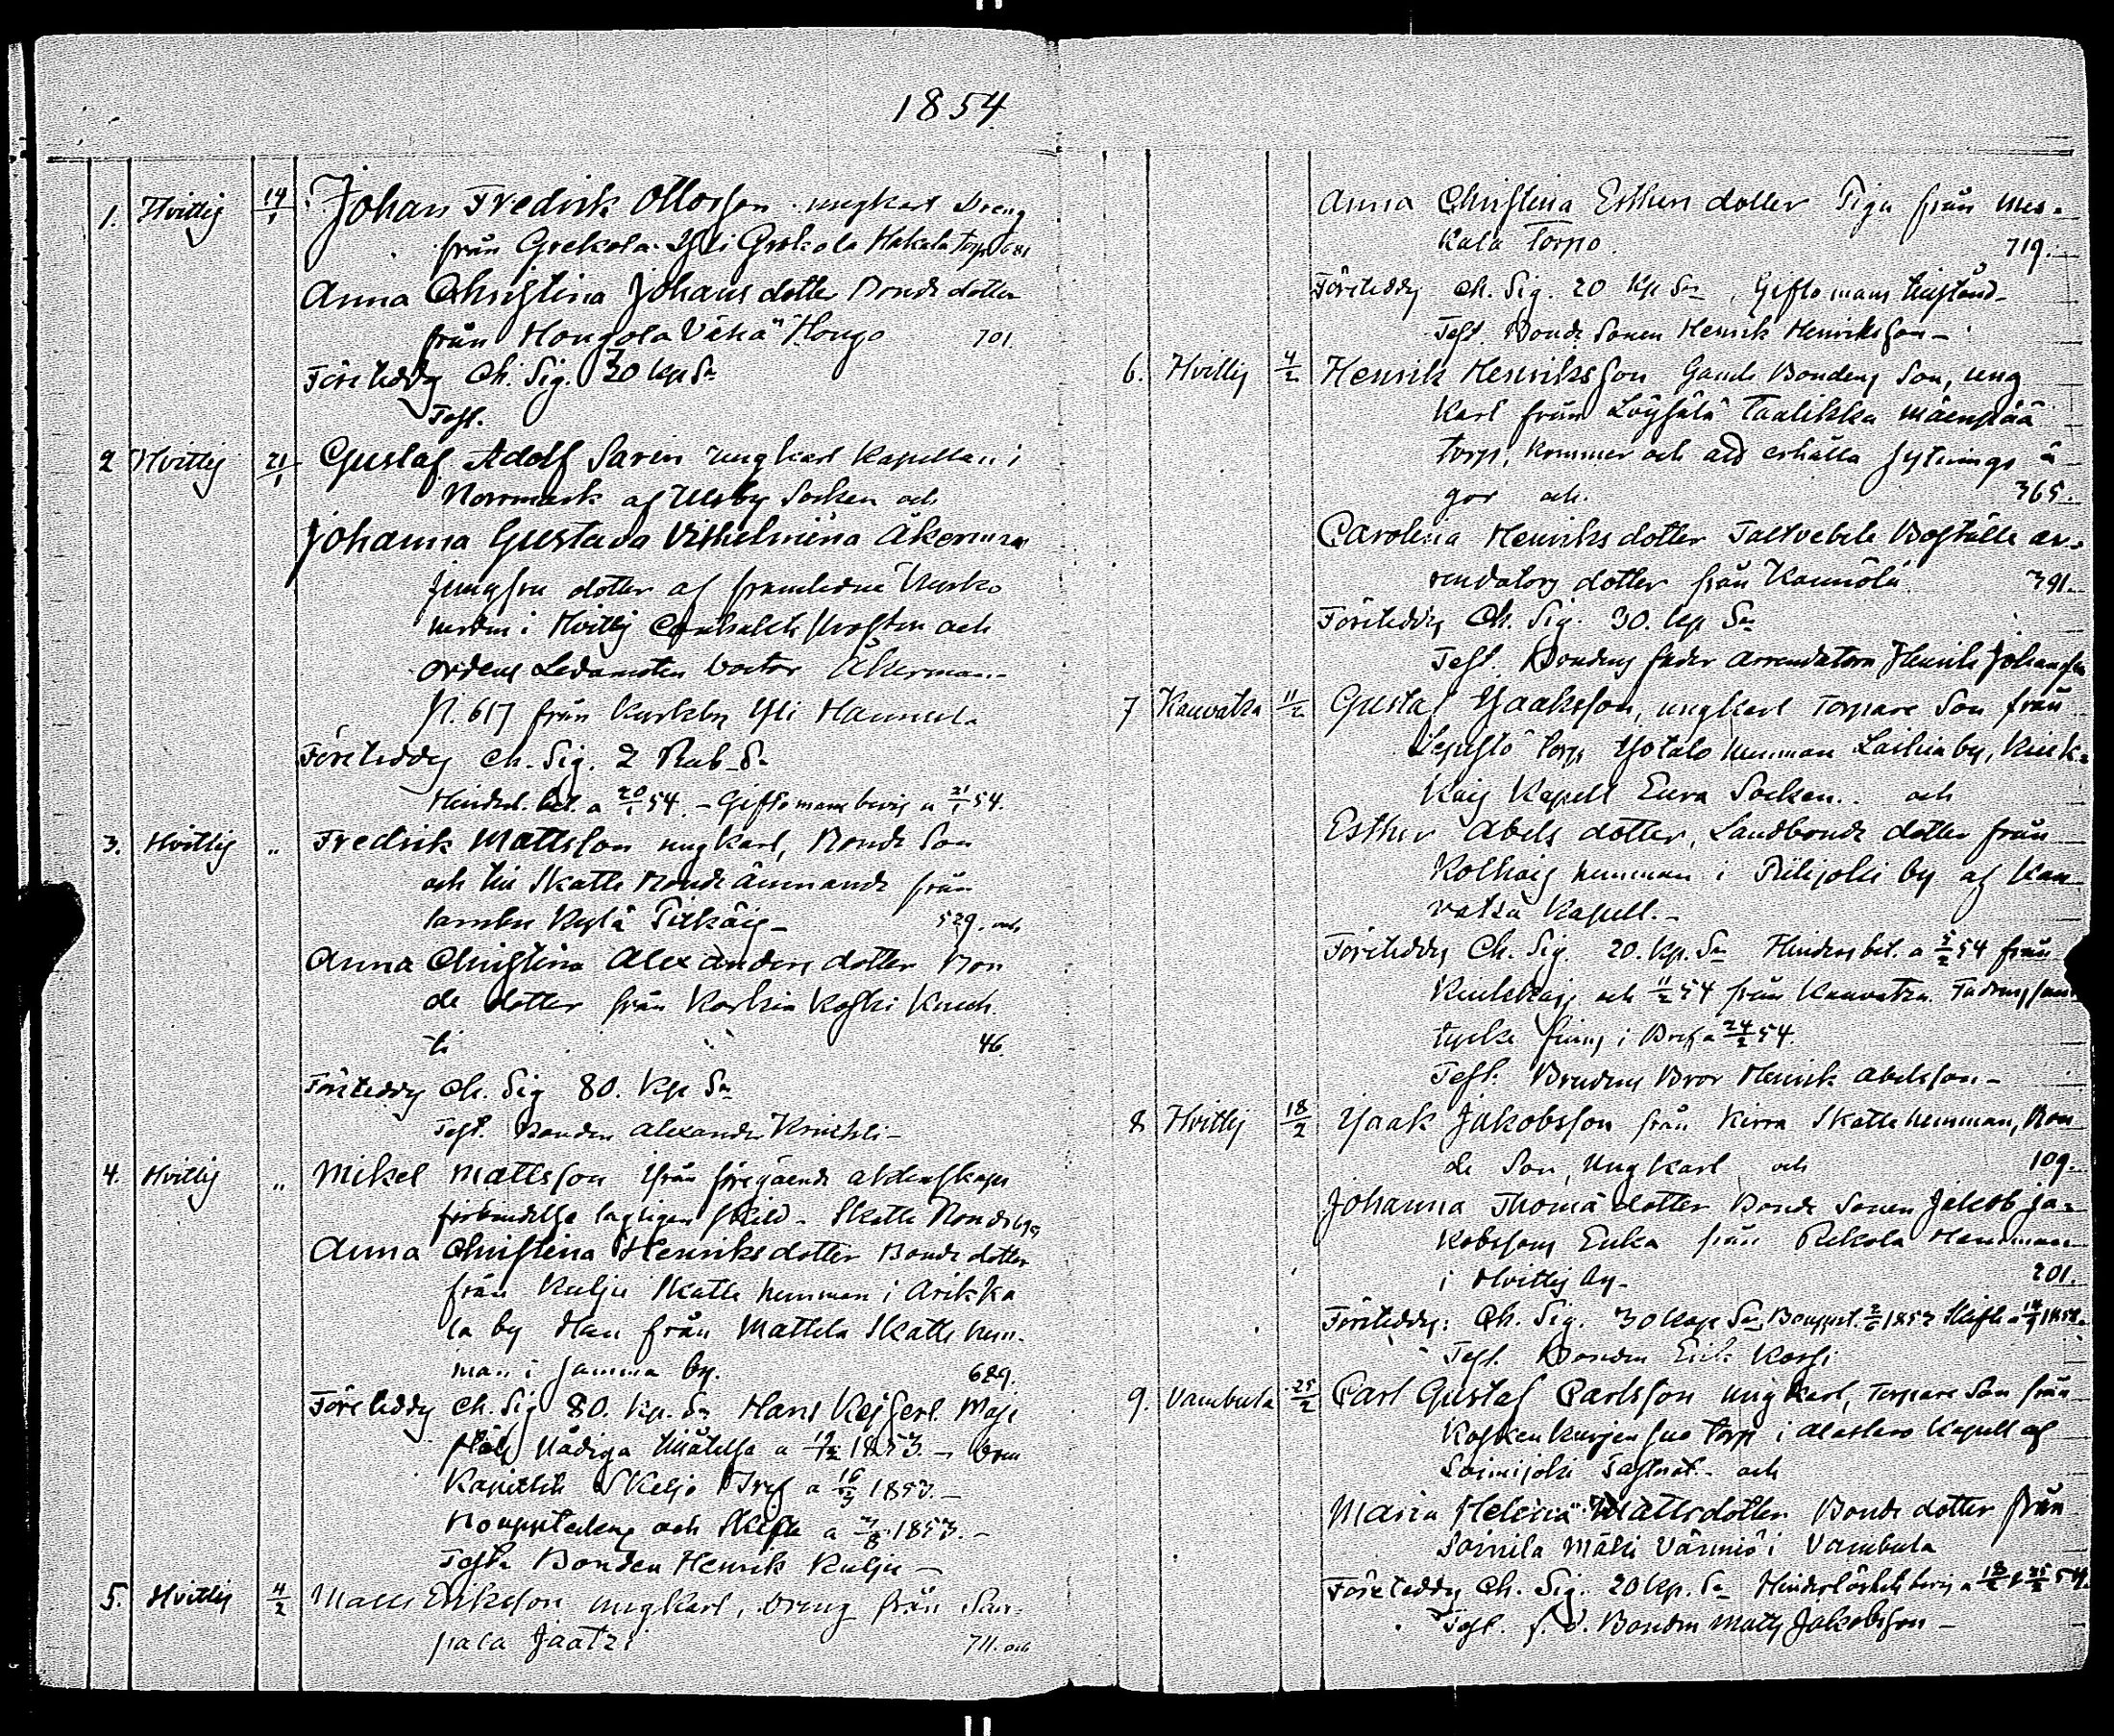 1854
1. Hvittij 14/1 Johan Fredrik Ottosson ungkarl Dreng
från Grekola Yli Grekola Hakala Torp
Anna Christina Johans dotter Bonde dotter
från Hongola Vähä Hongo 701.
Företeddz Ch. Sig. 20 kp Sr
Test.
2 Hvittij 21/1 Gustaf Adolf Saren ungkarl Kapellan i
Norrmark af Ulfsby Socken och
Johanna Gustava Vilhelmina Åkerman
Jungfru dotter af framledne Kyrko
herden i Hvittij Contrakts Prosten och
ordens Ledamoten Doctor Åkerman
N. 617 från Kyrkby Yli Hannula
Företeddz Ch. Sig. 2 Rub. Sr
Hindersl. bet. a 20/1 54. - Giftomans bevis a 21/1 54.
3. Hvittij " Fredrik Mattsson ungkarl, Bonde Son
och till Skatte Bonde ämnande från
Kylä Pitkäis 529. och
Anna Christina Alexanders dotter Bon
de dotter från Karhia Koski Knuch
ti 46.
Företeddz Ch. Sig 80. kp Sr
Test. Bonden Alexander
4. Hvittij " Mikel Mattsson ifrån föregående
förbindelse lagligen skild - Skatte Bonde
Anna Christina Henriks dotter Bonde dotter
från Kulju Skatte hemman i Arikka
la by Han från Mattila Skatte hem-
man i samma by. 689.
Företeddz Ch. Sig 80. kp. Sr Hans Kejserl. Maje
stäts Nådiga tillåtelse a 1853. - Dom
Kapitlets Skiljo Bref a 1853. -
Bouppteckng och Skifte a 7/8 1853. -
Test. Bonden Henrik Kulju -
5. Hvittij 4/2 Matts Eriksson ungkarl, Dreng från Sam-
pala Jaatzi 711. och
Anna Christina Esthers dotter Piga från Mes-
kala Torpo. 719.
Företeddz Ch. Sig. 20 kp Sr, Giftomans tillstånd -
Test. Bonde Sonen Henrik Henriksson -
6. Hvittij 4/2 Henrik Henriksson Gamle Bondens Son, ung
karl från Löysälä Taalikka mäenpää
torp, kommer och att erhålla flyttnings å
gor och 365.
Carolina Henriks dotter Faltvebels Boställe ar-
rendators dotter från Kannölä 391.
Företeddz Ch. Sig. 30. kp Sr
Test. Brudens fader Arrendatorn Henrik Johansson
7 Kauvatsa 11/2 Gustaf Isaaksson, ungkarl Torpare Son från
Lepistö Torp Isotalo hemman Laihia by, Kiuk-
kais Kapell Eura Socken.. och
Esther Abels dotter, Landbonde dotter från
Kolhais hemman i Piilijoki by af Kau
vatsa Kapell. -
Företeddz Ch. Sig. 20. kp. Sr Hinders bet. a 5/2 54 från
Kiukkais och 11/2 54 från Kauvatsa. Fadrens sam
tycke finns i Bref a 24/2 54.
Test. Brudens Bror Henrik Abelsson -
8 Hvittij 18/2 Isaak Jakobsson från Kirra Skatte hemman, Bon
de Son, Ungkarl och 109.
Johanna Thomä dotter Bonde Sonen Jakob Ja-
kobssons Enka från Rekola Hemman
i Hvittij by - 201.
Företeddz: Ch. Sig. 30 kop Sr, Bouppt. 2/6 1853 Skifte a 1854.
Test. Bonden Erik Korsi
9. Vambula 25/2 Carl Gustaf Carlsson ungkarl, Torpare Son från
Koskenkurjensuo Torp i Alastaro Kapell af
Loimijoki Pastorat. - och
Maria Helena Mattsdotter Bonde dotter från
Soinila Mäki Värmiö i Vambula
Företeddz Ch. Sig. 20 kp. Sr Hinderlöshets bevis a 18/2 & 25/2 54.
Test. f. d. Bonden Matts Jakobsson -